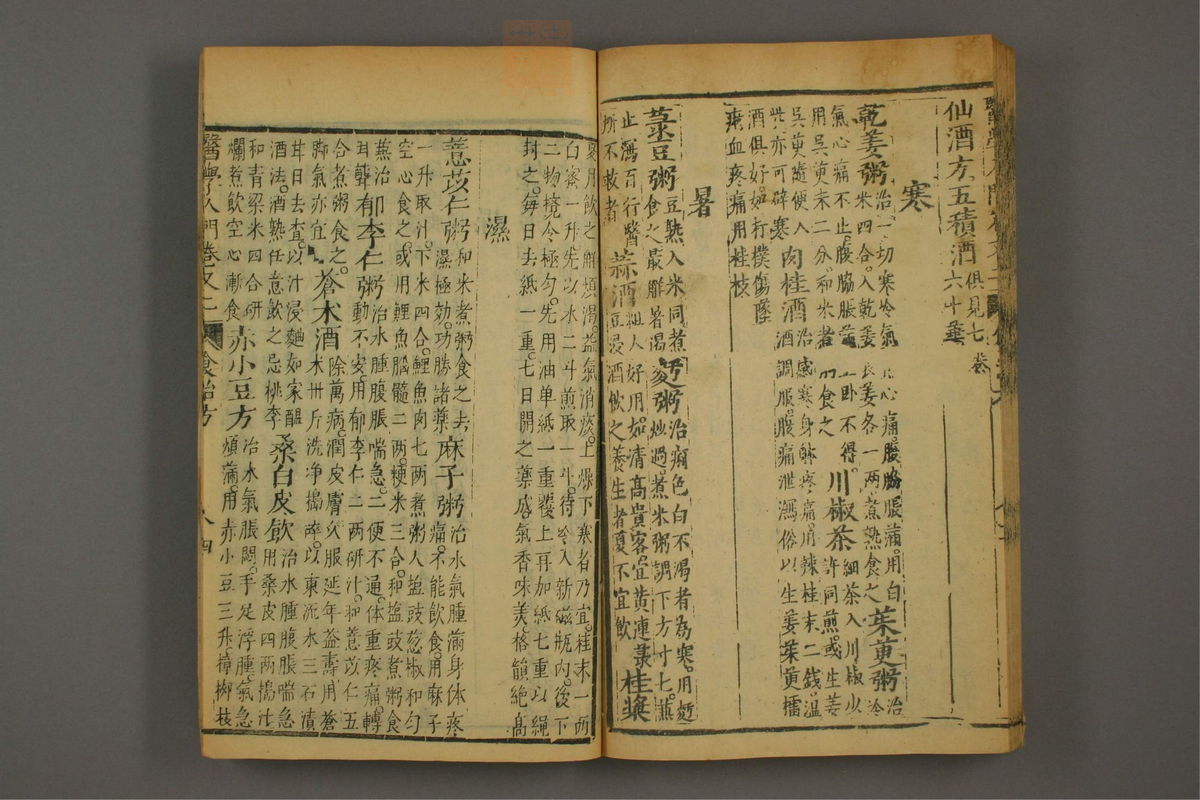 仙酒方五積酒俱見七卷
六十葉
寒
乾姜粥治一切寒冷氣心痛腹脇脹滿用白茱萸粥治冷
米四合入乾姜良姜各一两煮熟食之
氣心痛不止腹脇脹卧不得川椒茶細茶入川椒少
用吳萸末二分和米煮食之許同煎或生姜
吳萸隨便入肉桂酒治感寒身體疼痛用辣桂末二錢溫
些亦可辟寒酒調服腹痛泄瀉俗以生姜茱萸擂
酒俱好如打撲傷墜
瘀血疼痛用桂枝
暑
菉豆粥豆熟入米同煮麪粥治痢色白不渴者為寒用麪
食之最解暑渴炒過煮米粥調下方寸七兼
止瀉百行醫蒜酒粗人好用如清高貴客宜黃連菉桂漿
所不救者豆浸酒飲之養生者憂不宜飲
夏月飲之解煩渴益氣消痰上燥下寒者乃宜桂末一两
白蜜一升先以水二斗煎取一斗待冷入新磁瓶內後下
二物攪令極勻先用油单紙一重覆上再加紙七重以繩
封之每日去紙一重七日開之藥成氣香味美格韻絕高
濕
薏苡仁粥和米煮粥食之去麻子粥治水氣腫滿身体疼
濕極効功勝諸藥痛不能飲食用麻子
一升取汁下米四合鯉魚肉七两煮粥入盐豉葱椒和勻
空心食之或用鯉魚腦髓二两粳米三合和塩豉煮粥食
兼治耳聾郁李仁粥治水腫腹脹喘急二便不通体重疼痛轉
動不安用郁李仁二两研汁和薏苡仁五
合煮粥食之蒼术酒除萬病潤皮膚久服延年益壽用蒼
脚氣亦宜术卅斤洗净搗碎以東流水三石漬
廿日去查以汁浸麯如家醞桑白皮飲治水腫腹脹喘急
酒法酒熟任意飲之忌桃李用桑皮四两搗汁
和青梁米四合研赤小豆方治水氣脹悶手足浮腫氣急
爛煮飲空心漸食煩滿用赤小豆三升樟柳枝
醫學入門卷之二食治方八四